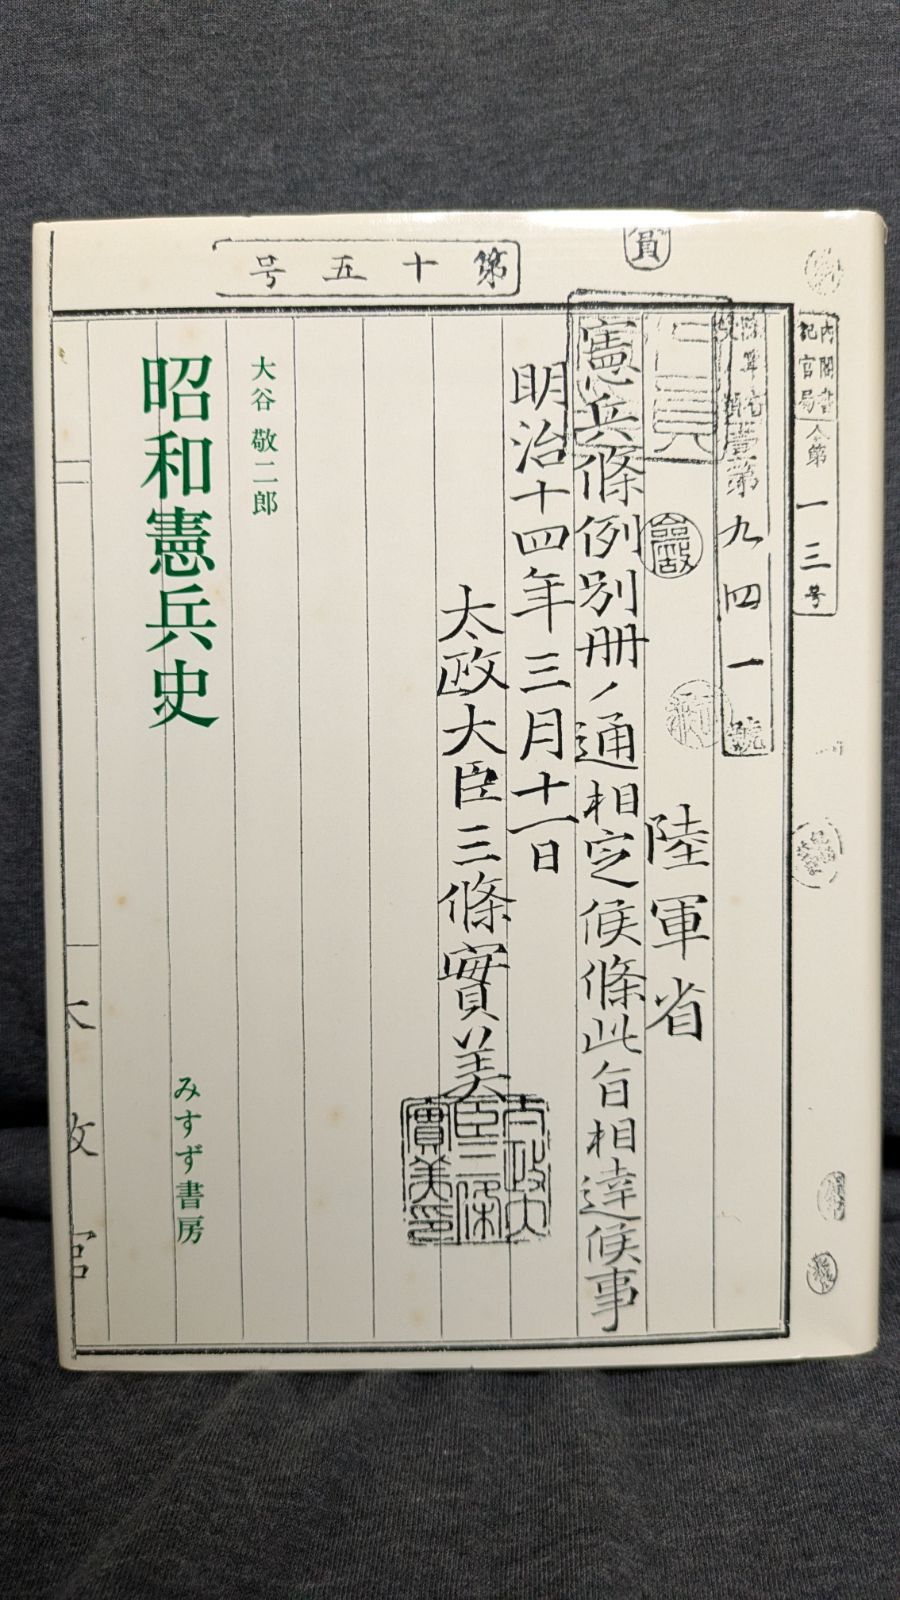 第十五号
員
内閣書記官局
仝第一三号
第九四一號
陸軍省
憲兵條例別冊ノ通相定候條此旨相達候事
明治十四年三月十一日
太政大臣三條實美
太政大臣三條實美印
大谷 敬二郎
昭和憲兵史
みすず書房
太政官